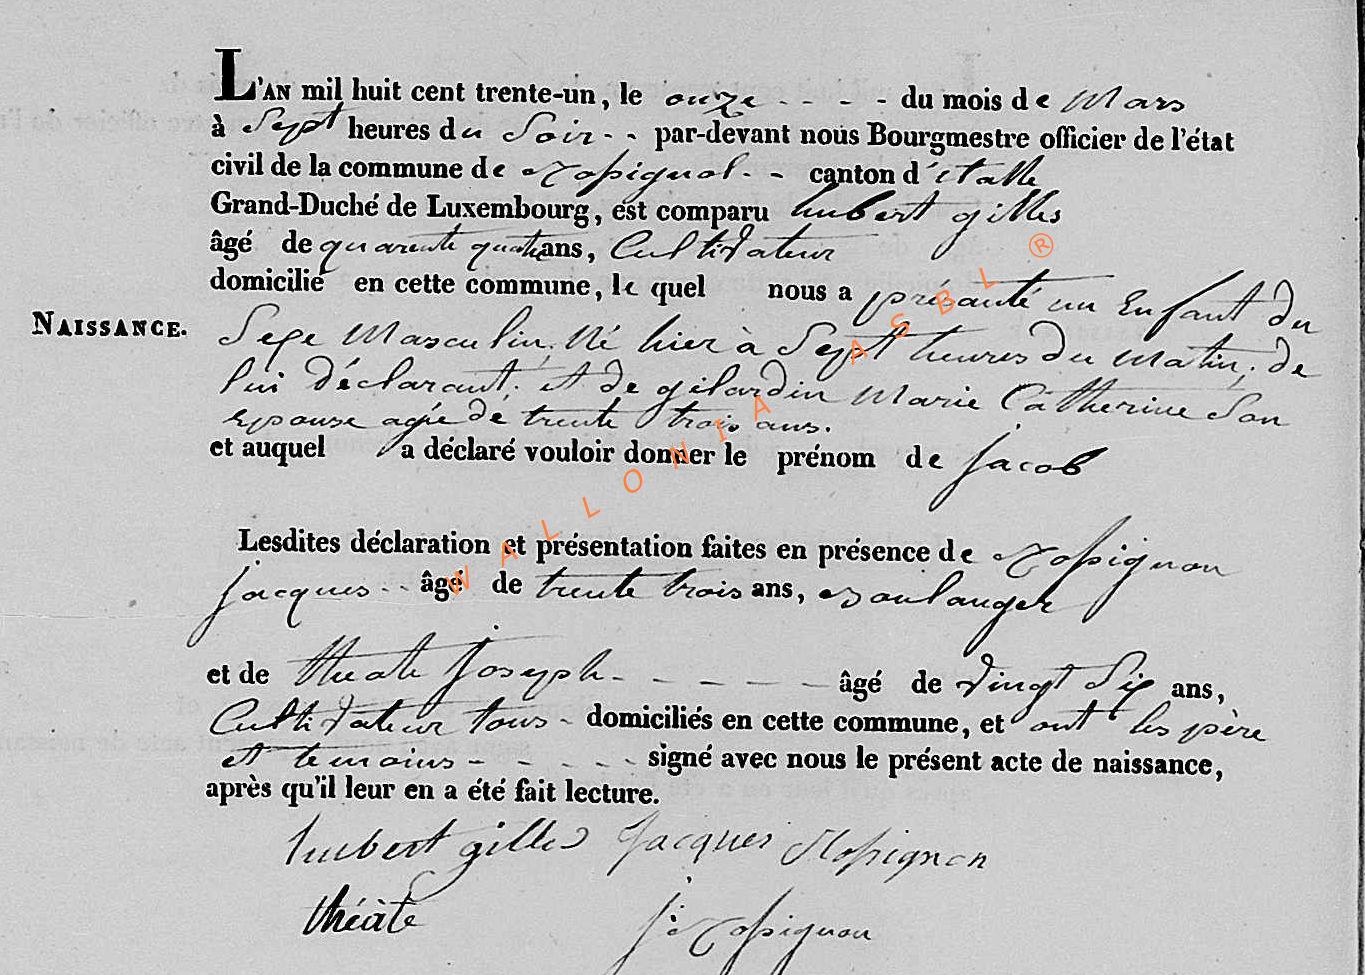 L'AN mil huit cent trente-un, le onze - - - - du mois de Mars
à Sept heures du Soir - - par-devant nous Bourgmestre officier de l'état
civil de la commune de Rossignol - - canton d'étalle
Grand-Duché de Luxembourg, est comparu hubert gilles
âgé de quarente quatre ans, Cultivateur
domicilié en cette commune, le quel nous a présenté un Enfant du
NAISSANCE.
Sexe Masculin, Né hier à Sept heures du matin, de
lui déclarant, et de gilardin Marie Catherine Son
Epouse agée de trente trois ans.
et auquel a déclaré vouloir donner le prénom de jacob
Lesdites déclaration et présentation faites en présence de Rossignon
jacques - - âgé de trente trois ans, Boulanger
et de théate joseph - - - - - - âgé de vingt Six ans,
Cultivateur tous - domiciliés en cette commune, et ont les père
et temoins - - - - - signé avec nous le présent acte de naissance,
après qu'il leur en a été fait lecture.
hubert gilles Jacques Rossignon
théate j: Rossignon
WALLONIA ASBL ®